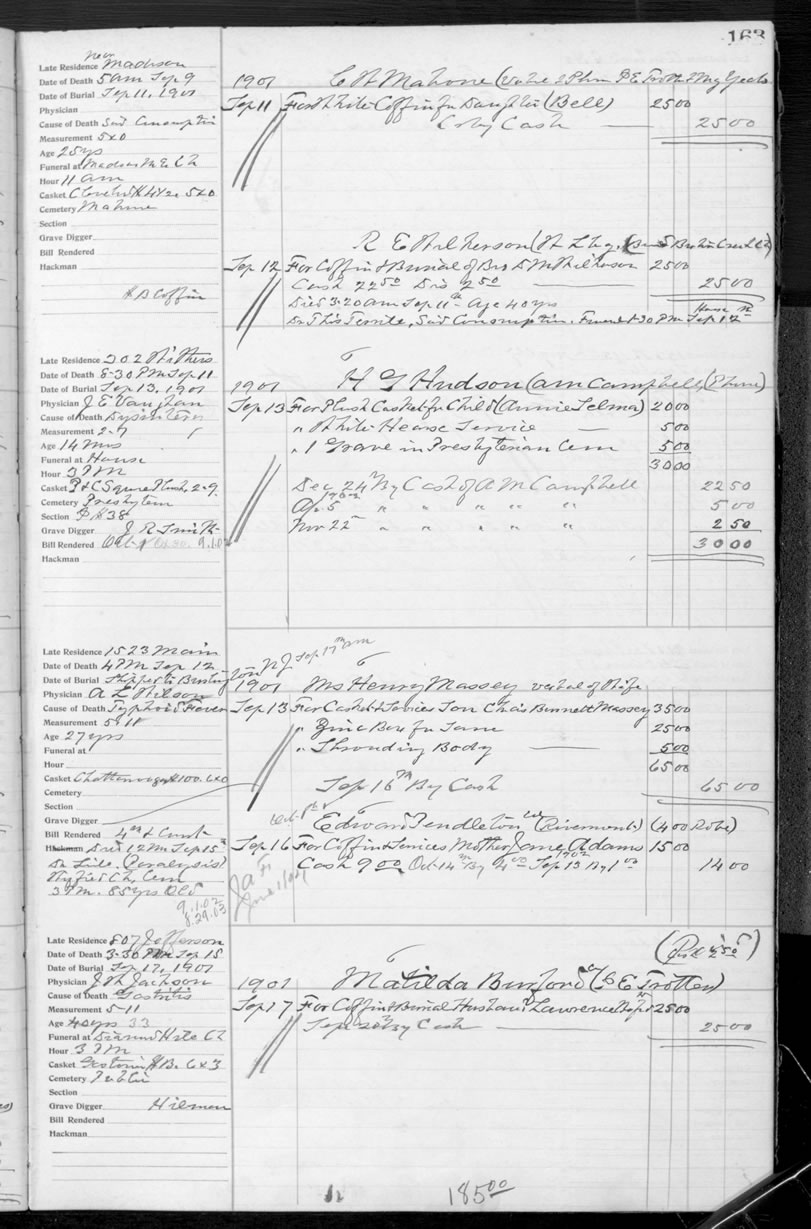 163
Late Residence near Madison
Date of Death 5 am Sep 9
Date of Burial Sep 11, 1901
Physician
Cause of Death Consumption
Measurement 5x0
Age 25 yrs
Funeral at Madison M.E. Ch
Hour 11 am
Casket 5x0
Cemetery Mahone
Section
Grave Digger
Bill Rendered
Hackman
1901 Mahone
Sep 11 For White Coffin for Daughter (Bell) 25 00
By Cash 25 00
R E Wilkerson
Sep 12 For Coffin & Burial of Bro D M Wilkerson 25 00
Cash 22 50 Dis 2 50 25 00
Died 3-20 am Sep 11th Age 40 yrs
Consumption. Funeral 4-30 PM Sep 12
H B Coffin
Late Residence 202 Withers
Date of Death 8-30 PM Sep 11
Date of Burial Sep 13, 1901
Physician J E Vaughan
Cause of Death Dysentery
Measurement 2-7
Age 14 Mos
Funeral at House
Hour 3 PM
Casket P & C Square Plush, 2-9
Cemetery Presbytern
Section P H 38
Grave Digger J R Smith
Bill Rendered Oct-1 9.1.02
Hackman
1901 H G Hudson (A M Campbell, (Phone)
Sep 13 For Plush Casket for Child (Annie Selma) 20 00
" White Hearse Service 5 00
" 1 Grave in Presbyterian Cem 5 00
30 00
Dec 24th By Cash of A M Campbell 22 50
1902
Ap 5 " " " " " 5 00
Nov 22 " " " " " 2 50
30 00
Late Residence 1523 Main
Date of Death 4 PM Sep 12
Date of Burial Shipped to Burlington N J Sep 17th am
Physician A L Wilson
Cause of Death Typhoid Fever
Measurement 5-11
Age 27 yrs
Funeral at
Hour
Casket Chattanooga # 100. 6x0
Cemetery
Section
Grave Digger
Bill Rendered
Hackman
1901 Ms Henry Massey verbal of Wife
Sep 13 For Casket & Services Son Chas Bennett Massey 35 00
" Zinc Box for Same 25 00
" Shrouding Body 5 00
65 00
Sep 16th By Cash 65 00
Edward Pendleton (Rivermont) (400 Robe)
Sep 16 For Coffin & Services Mother Jane Adams 15 00
1902
Cash 9 00 Oct 14th By 4 00 Sep 13 By 1 00 14 00
4th & Court
Died 12 M Sep 15th
(Paralysis)
Ch, Cem
3 PM. 85 yrs Old
9.1.02
8.29.03
Late Residence 807 Jefferson
Date of Death 3-30 PM Sep 15
Date of Burial Sep 17, 1901
Physician J H Jackson
Cause of Death Gastritis
Measurement 5-11
Age 40 yrs 33
Funeral at Diamond Hill Ch
Hour 3 PM
Casket 6x3
Cemetery Public
Section
Grave Digger Hileman
Bill Rendered
Hackman
1901 Matilda Burford (G E Trotter)
Sep 17 For Coffin & Burial Husband Lawrence 25 00
Sep 20th By Cash 25 00
185 00